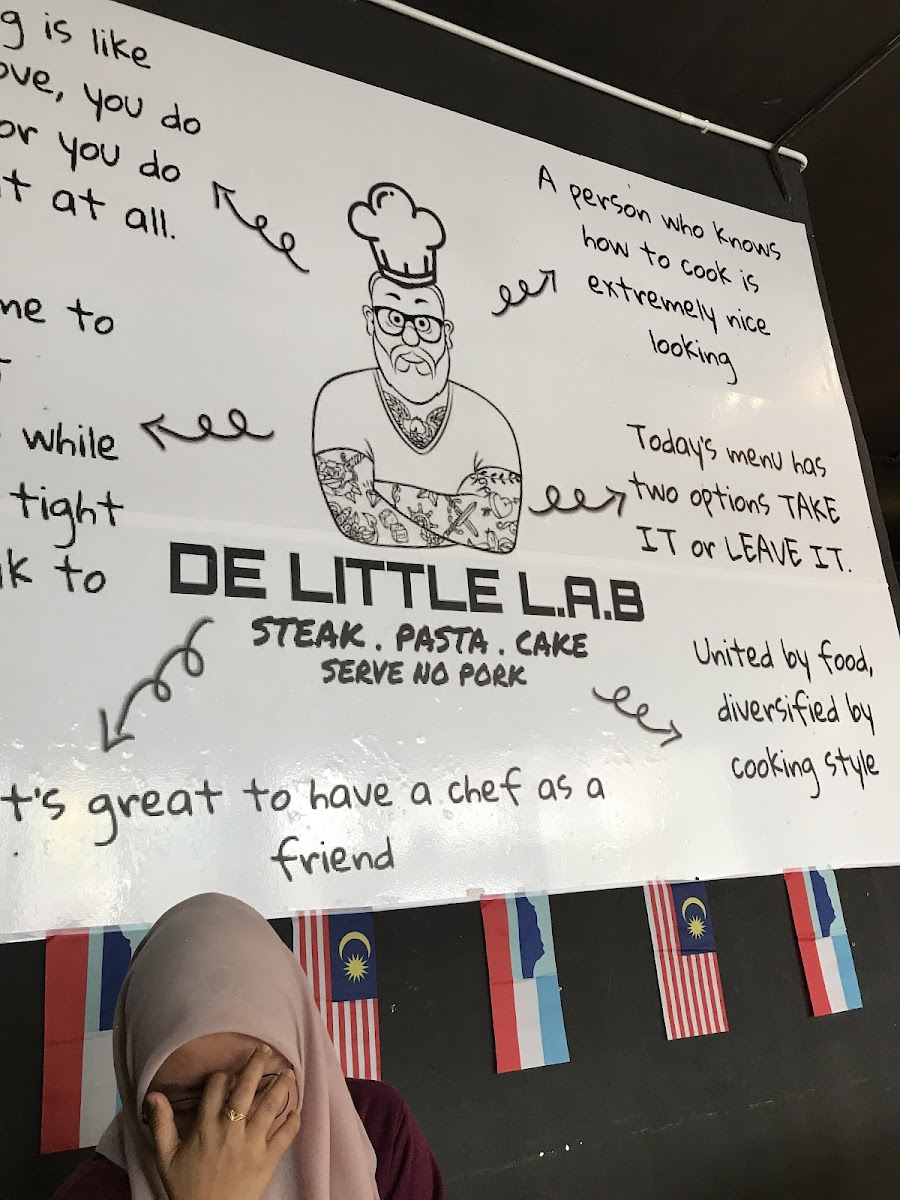 is like
you do
or you do
at all.
to
while
tight
to
A person who knows
how to cook is
extremely nice
looking
Today's menu has
two options TAKE
IT or LEAVE IT.
DE LITTLE L.A.B
STEAK . PASTA . CAKE
SERVE NO PORK
United by food,
diversified by
cooking style
t's great to have a chef as a
friend